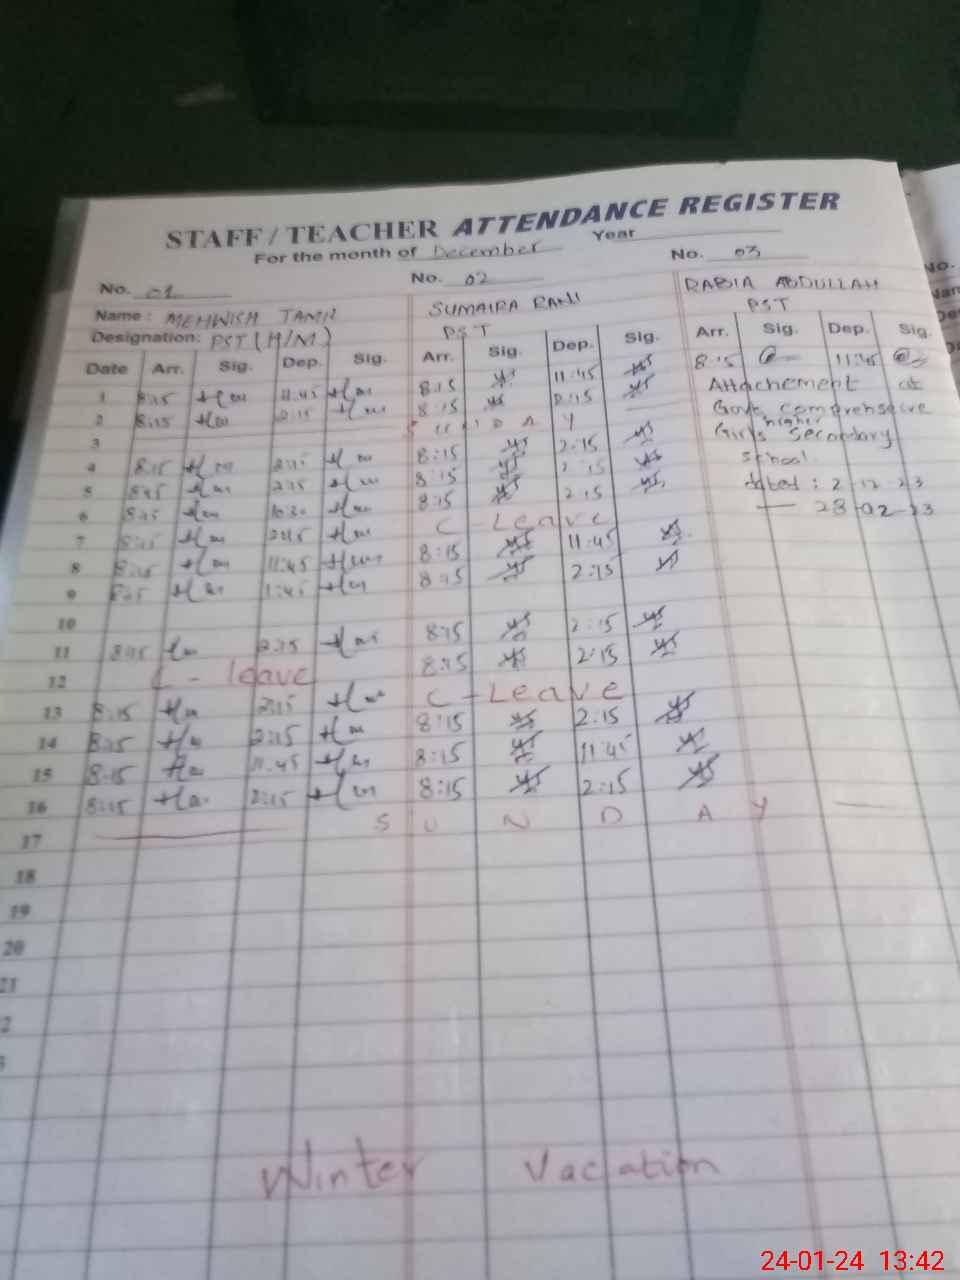 STAFF / TEACHER ATTENDANCE REGISTER
For the month of December Year
No. 01 No. 02 No. 03
Name: MEHWISH SUMAIRA RANI RABIA ABDULLAH
Designation: PST (H/M) PST PST
Date Arr. Sig. Dep. Sig. Arr. Sig. Dep. Sig. Arr. Sig. Dep. Sig.
1 8:15 11:45 8:15 11:45 8:15 11:45
2 8:15 2:15 8:15 2:15 Attachement at
3 S U N D A Y Govt comprehensive
4 8:15 2:15 8:15 2:15 Girls higher Secondary
5 8:15 2:15 8:15 2:15 School
6 8:15 10:30 8:15 2:15 dated: 2-12-23
7 8:15 2:15 C - Leave — 28-02-23
8 8:15 11:45 8:15 11:45
9 8:15 1:45 8:15 2:15
10
11 8:15 2:15 8:15 2:15
12 C - leave 8:15 2:15
13 8:15 2:15 C - Leave
14 8:15 2:15 8:15 2:15
15 8:15 11:45 8:15 11:45
16 8:15 2:15 8:15 2:15
17 S U N D A Y
18
19
20
21
2
3
Winter Vacation
No.
24-01-24 13:42